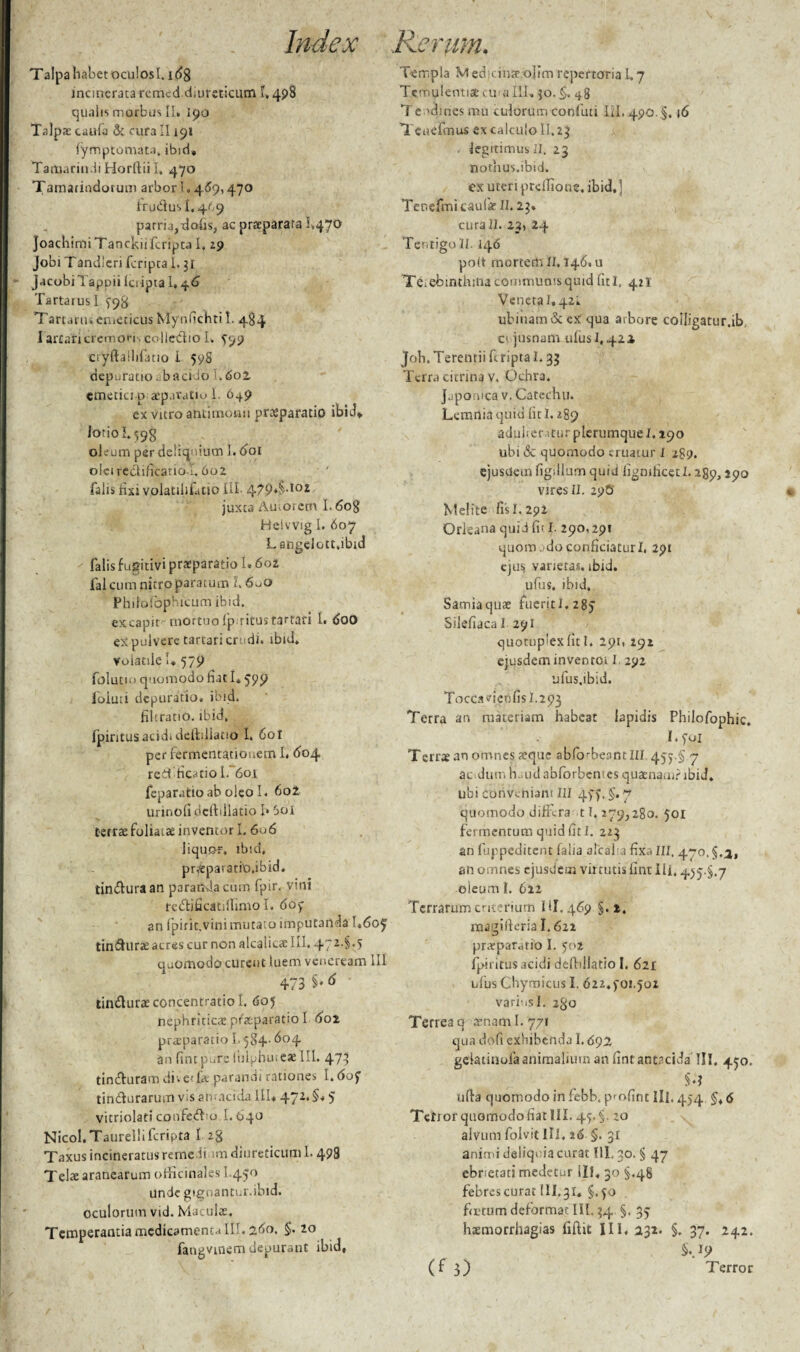 Index Rerum.
Talpa habet oculos I. 168
incinerata remed. diureticum I. 498
qualis morbus II. 190
Talpæ causa & cura II 191
symptomata. ibid.
Tamarindi Horstii I. 470
Tamarindorum arbor I. 469, 470
fructus I. 469
patria, dosis, ac præparata I. 470
Joachimi Tanckii scripta I. 29
Jobi Tandleri scripta I. 31
Jacobi Tappii scripta I. 46
Tartarus I 598
Tartarus emeticus Mynsichti I. 484
Tartari cremoris collectio I. 599
crystallisatio I 598
depuratio ab acido I. 602
emetici præparatio I. 649
ex vitro antimonii præparatio ibid.
lotio I. 598
oleum per deliquium I. 601
olei rectificatio I. 602
salis fixi volatilisatio III. 479. §. 102
juxta Autorem I. 608
Helvvig I. 607
Langelott. ibid
salis fugitivi præparatio I. 602
sal cum nitro paratum I. 600
Philosophicum ibid.
ex capite mortuo spiritus tartari I. 600
ex pulvere tartari crudi. ibid.
volatile I. 579
solutio quomodo fiat I. 599
soluti depuratio. ibid.
filtratio. ibid.
spiritus acidi destillatio I. 601
per fermentationem I. 604
rectificatio I. 601
separatio ab oleo I. 602
urinosi destillatio I. 601
terræ foliatæ inventor I. 606
liquor. ibid.
præparatio. ibid.
tinctura an paranda cum spir. vini
rectificatissimo I. 605
an spirit. vini mutato imputanda I. 605
tincturæ acres cur non alcalicæ III. 472. §. 5
quomodo curent luem veneream III
473 §. 6
tincturæ concentratio I. 605
nephriticæ præparatio I 602
præparatio I. 584. 604
an sint pure sulphureæ III. 473
tincturam diversæ parandi rationes I. 605
tincturarum vis antacida III. 472. §. 5
vitriolati confectio I. 640
Nicol. Taurelli scripta I 28
Taxus incineratus remedium diureticum I. 498
Telæ aranearum officinales I. 450
unde gignantur. ibid.
oculorum vid. Maculæ.
Temperantia medicamenta III. 260. §. 20
sangvinem depurant ibid.
Templa Medicinæ olim repertoria I. 7
Temulentiæ cura III. 30. §. 48
Tendines musculorum consuti III. 490. §. 16
Tenesmus ex calculo II. 23
legitimus II. 23
nothus. ibid.
ex uteri pressione. ibid.]
Tenesmi causæ II. 23.
cura II. 23, 24
Tentigo II. 146
post mortem II. 146. u
Terebinthina communis quid sit I. 421
Veneta I. 421
ubinam & ex qua arbore colligatur. ib.
cujusnam usus I. 422
Joh. Terentii scripta I. 33
Terra citrina v. Ochra.
Japonica v. Catechu.
Lemnia quid sit I. 289
adulteratur plerumque I. 290
ubi & quomodo eruatur I 289.
ejusdem sigillum quid significet I. 289, 290
vires II. 296
Melite sis I. 292
Orleana quid sit I. 290, 291
quomodo conficiatur I. 291
ejus varietas. ibid.
usus. ibid.
Samia quæ fuerit I. 285
Silesiaca I 291
quotuplex sit I. 291, 292
ejusdem inventor I. 292
usus. ibid.
Toccaviensis I. 293
Terra an materiam habeat lapidis Philosophic.
I. 501
Terræ an omnes æque absorbeant III. 455. § 7
acidum haud absorbentes quænam? ibid.
ubi conveniant III 455. §. 7
quomodo differant I. 279, 280. 501
fermentum quid sit I. 223
an suppeditent salia alcalia fixa III. 470. §. 2,
an omnes ejusdem virtutis sint III. 455. §. 7
oleum I. 622
Terrarum criterium III. 469 §. 2.
magisteria I. 622
præparatio I. 502
spiritus acidi destillatio I. 621
usus Chymicus I. 622. 501. 502
varius I. 280
Terrea quænam I. 771
qua dosi exhibenda I. 692
gelatinosa animalium an sint antacida III. 450.
§. 3
usta quomodo in febb. prosint III. 454 §. 6
Terror quomodo fiat III. 45. §. 20
alvum solvit III. 26 §. 31
animi deliquia curat III. 30. § 47
ebrietati medetur III. 30 §. 48
febres curat III. 31. §. 50
fœtum deformat III. 34 §. 35
hæmorrhagias sistit III. 232. §. 37. 242.
§. 19
(f 3) Terror